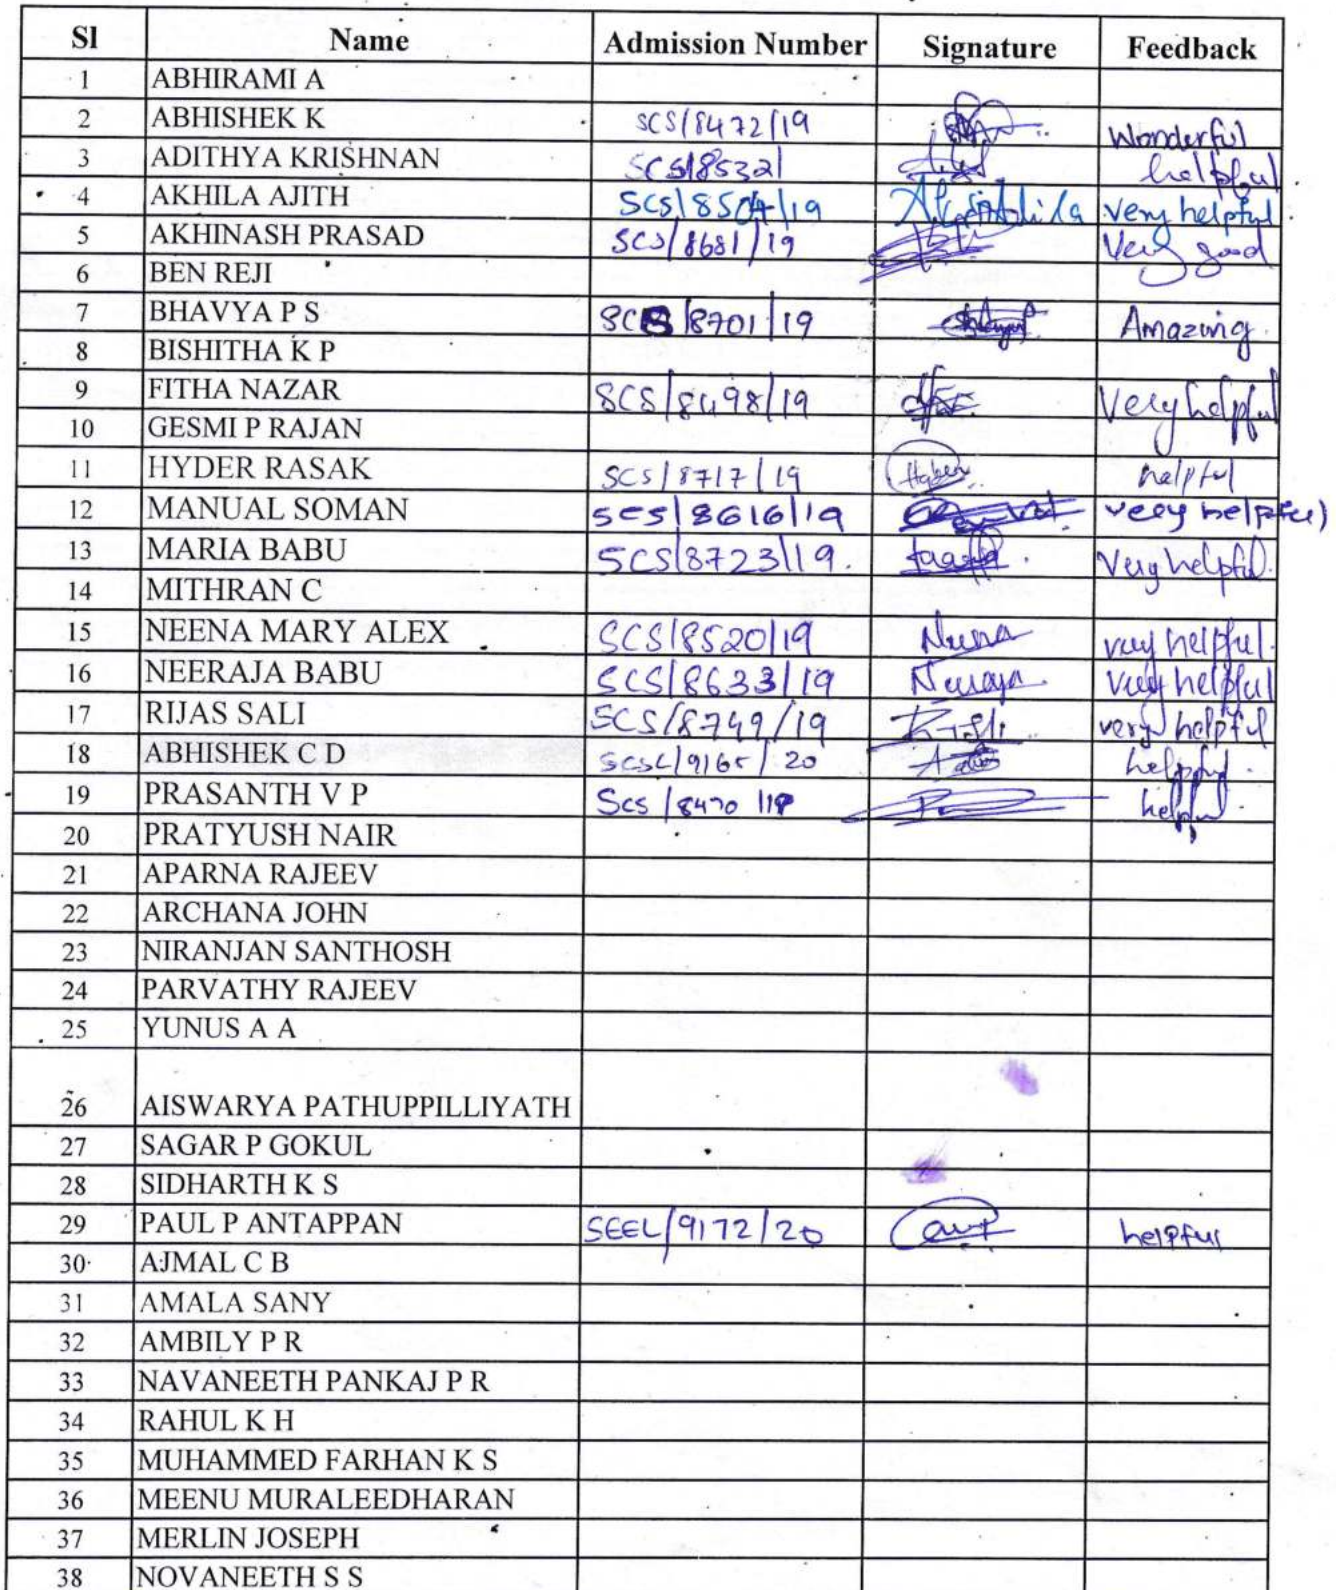 Sl Name Admission Number Signature Feedback
1 ABHIRAMI A
2 ABHISHEK K SCS/8472/19 Wonderful
3 ADITHYA KRISHNAN SCS/8532/ helpful
4 AKHILA AJITH SCS/8504/19 very helpful
5 AKHINASH PRASAD SCS/8681/19 Very good
6 BEN REJI
7 BHAVYA P S SCS/8701/19 Amazing
8 BISHITHA K P
9 FITHA NAZAR SCS/8498/19 Very helpful
10 GESMI P RAJAN
11 HYDER RASAK SCS/8717/19 helpful
12 MANUAL SOMAN SCS/8616/19 very helpful
13 MARIA BABU SCS/8723/19. Very helpful.
14 MITHRAN C
15 NEENA MARY ALEX SCS/8520/19 Neena very helpful.
16 NEERAJA BABU SCS/8633/19 Neeraja very helpful
17 RIJAS SALI SCS/8749/19 very helpful
18 ABHISHEK C D helpful.
19 PRASANTH V P helpful.
20 PRATYUSH NAIR
21 APARNA RAJEEV
22 ARCHANA JOHN
23 NIRANJAN SANTHOSH
24 PARVATHY RAJEEV
25 YUNUS A A
26 AISWARYA PATHUPPILLIYATH
27 SAGAR P GOKUL
28 SIDHARTH K S
29 PAUL P ANTAPPAN SEEL/9172/20 helpful
30 AJMAL C B
31 AMALA SANY
32 AMBILY P R
33 NAVANEETH PANKAJ P R
34 RAHUL K H
35 MUHAMMED FARHAN K S
36 MEENU MURALEEDHARAN
37 MERLIN JOSEPH
38 NOVANEETH S S